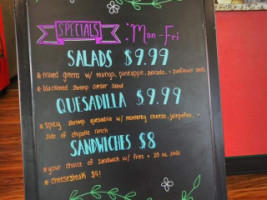 SPECIALS : Mon-Fri
SALADS $9.99
mixed greens w/ mango, pineapple, avocado, + sunflower seeds
blackened shrimp caesar salad
QUESADILLA $9.99
spicy shrimp quesadilla w/ monterey cheese, jalapeños, +
side of chipotle ranch
SANDWICHES $8
your choice of sandwich w/ fries + 20 oz. soda
cheesesteak $9!